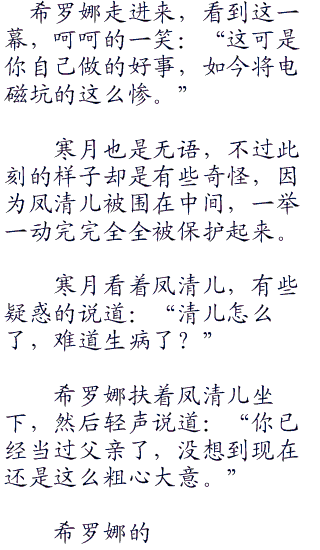 希罗娜走进来，看到这一
幕，呵呵的一笑：“这可是
你自己做的好事，如今将电
磁坑的这么惨。”
寒月也是无语，不过此
刻的样子却是有些奇怪，因
为凤清儿被围在中间，一举
一动完完全全被保护起来。
寒月看着凤清儿，有些
疑惑的说道：“清儿怎么
了，难道生病了？”
希罗娜扶着凤清儿坐
下，然后轻声说道：“你已
经当过父亲了，没想到现在
还是这么粗心大意。”
希罗娜的